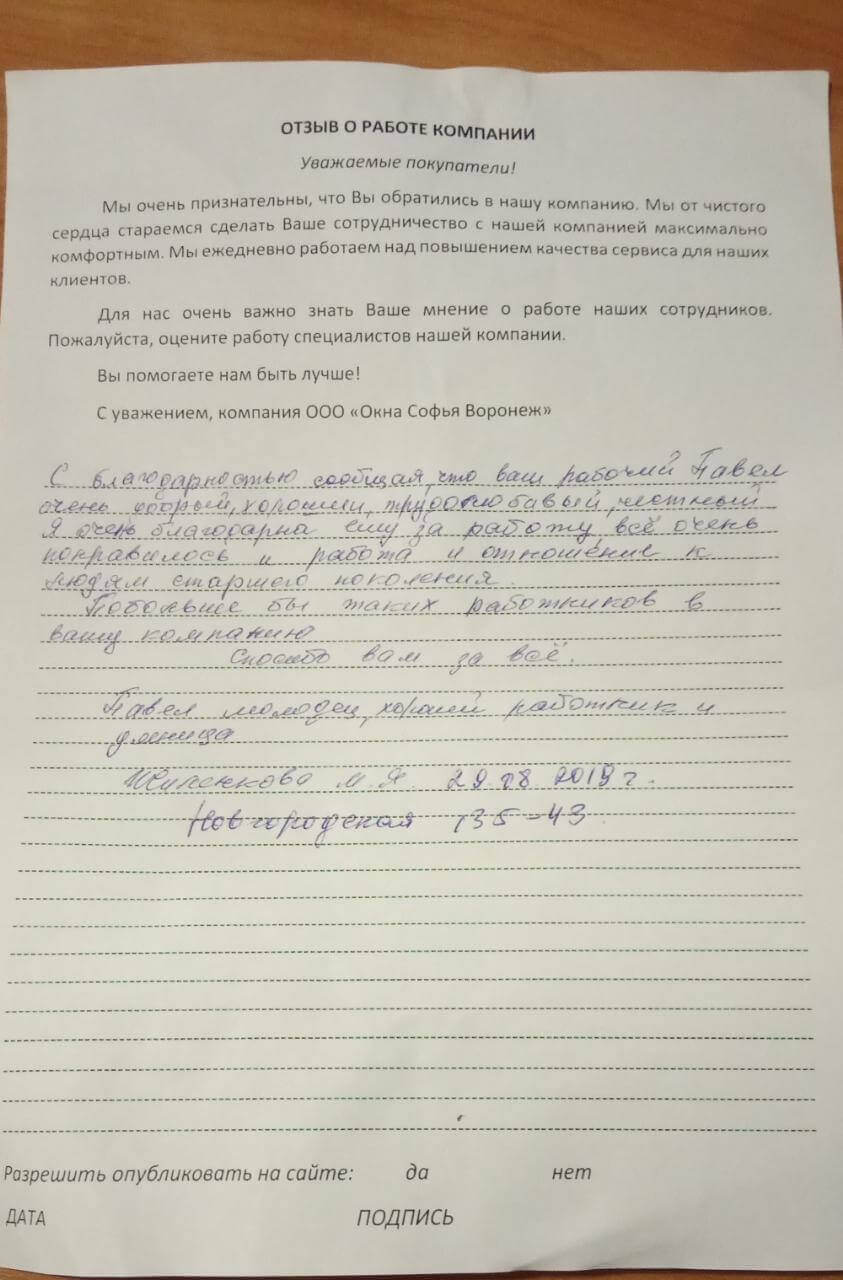 ОТЗЫВ О РАБОТЕ КОМПАНИИ
Уважаемые покупатели!
Мы очень признательны, что Вы обратились в нашу компанию. Мы от чистого
сердца стараемся сделать Ваше сотрудничество с нашей компанией максимально
комфортным. Мы ежедневно работаем над повышением качества сервиса для наших
клиентов.
Для нас очень важно знать Ваше мнение о работе наших сотрудников.
Пожалуйста, оцените работу специалистов нашей компании.
Вы помогаете нам быть лучше!
С уважением, компания ООО «Окна Софья Воронеж»
С благодарностью сообщая, что ваш рабочий Павел
очень добрый, хороший, трудолюбавый, честный
Я очень благодарна ему за работу, всё очень
понравилось и работа и отношение к
людям старшего поколения.
Побольше бы таких работников в
вашу компанию
Спасибо вам за всё.
Павел молодец, хороший работник и
умница
М.Я. 29 08 2019 г.
Новгородская 135-43.
Разрешить опубликовать на сайте: да нет
ДАТА ПОДПИСЬ